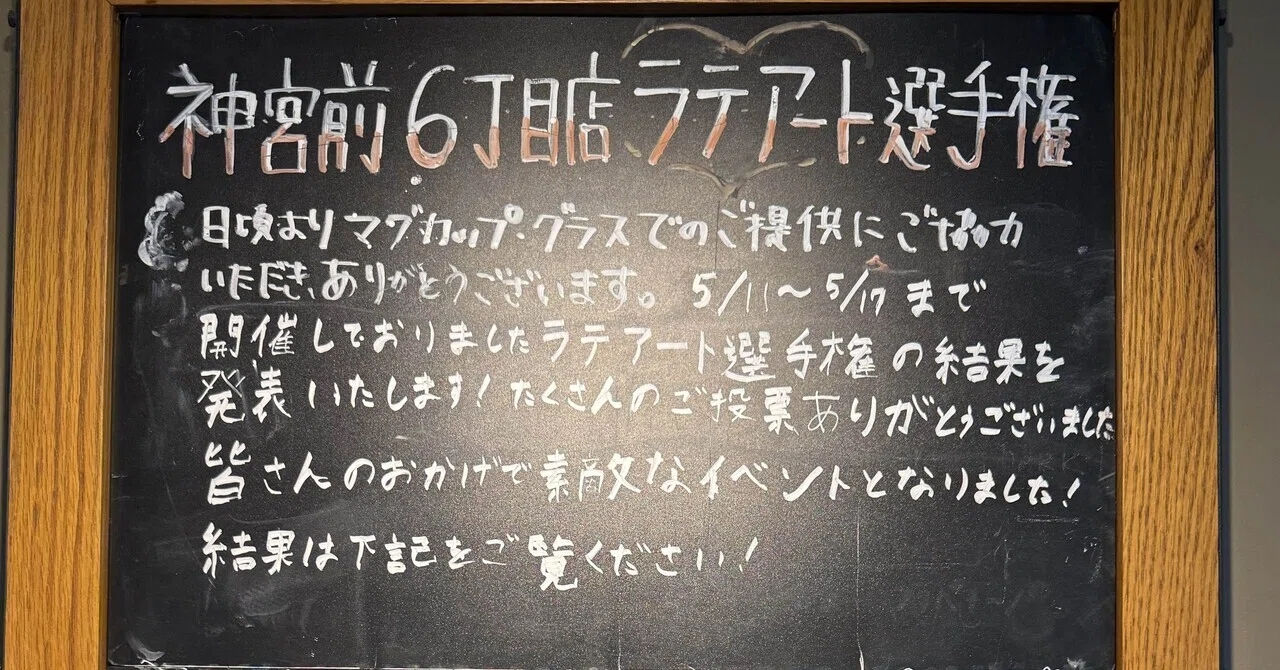 神宮前6丁目店 ラテアート選手権
日頃よりマグカップ・グラスでのご提供にご協力
いただき、ありがとうございます。 5/11〜5/17まで
開催しておりましたラテアート選手権の結果を
発表いたします！たくさんのご投票ありがとうございました
皆さんのおかげで素敵なイベントとなりました！
結果は下記をご覧ください！